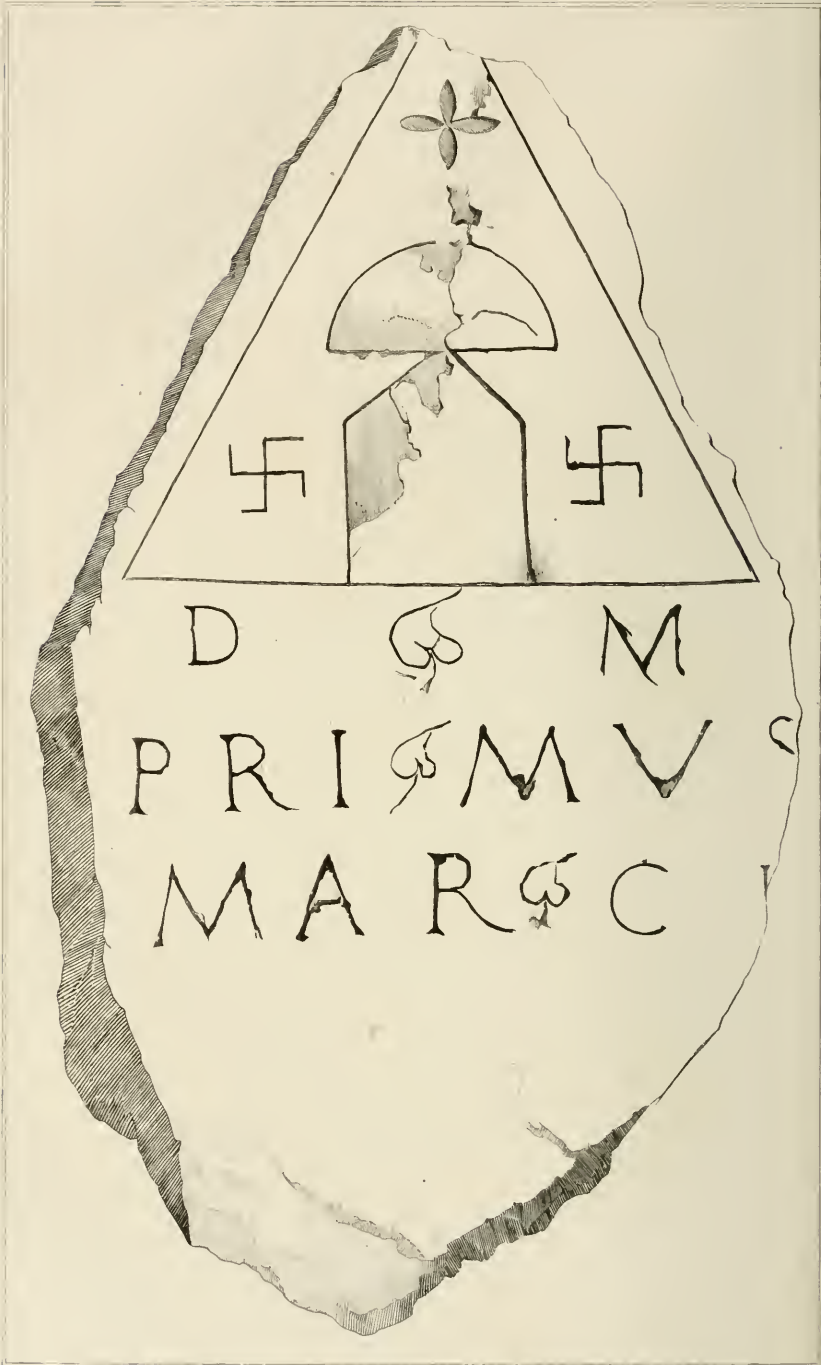 D ❦ M
PRI ❦ MVS
MAR ❦ C